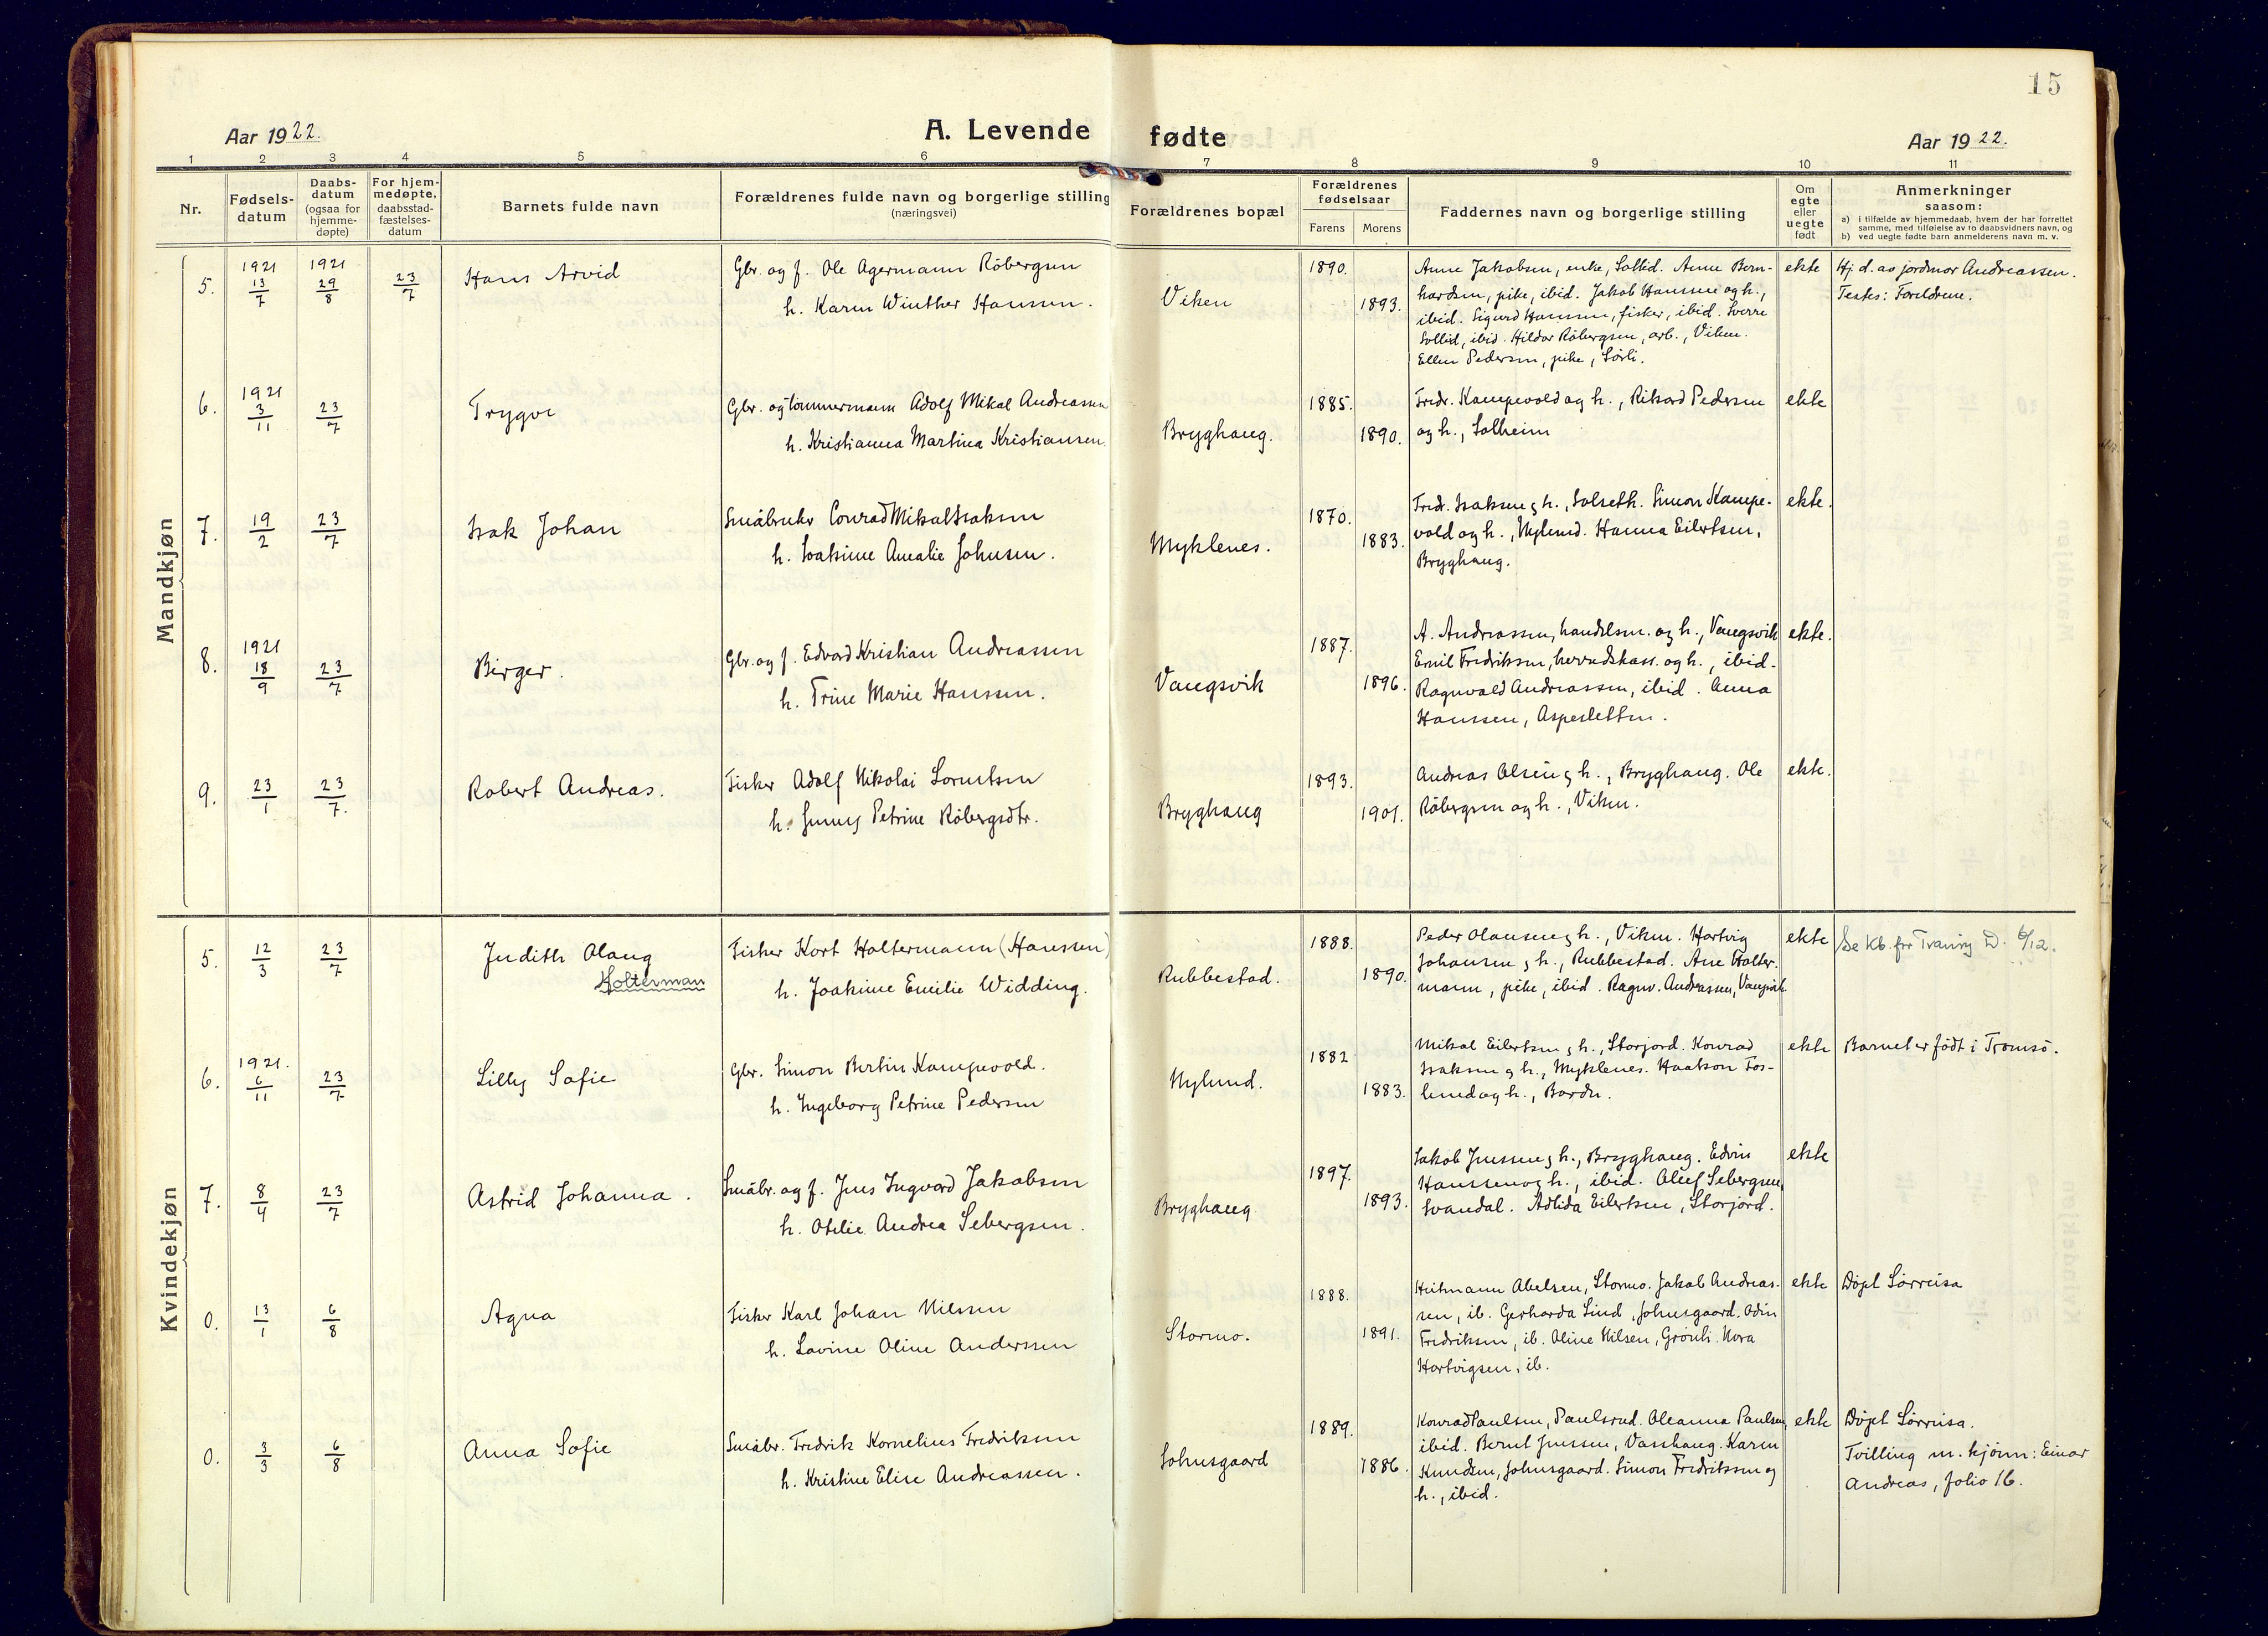 15
Aar 1922.
A. Levende
fødte
Aar 1922.
1 2 3 4 5 6 7 8 9 10 11
Nr.
Fødsels-
datum
Daabs-
datum
(ogsaa for
hjemme-
døpte)
For hjem-
medøpte,
daabsstad-
fæstelses-
datum
Barnets fulde navn
Forældrenes fulde navn og borgerlige stilling
(næringsvei)
Forældrenes bopæl
Forældrenes
fødselsaar
Farens Morens
Faddernes navn og borgerlige stilling
Om
egte
eller
uegte
født
Anmerkninger
saasom:
a) i tilfælde av hjemmedaab, hvem der har forrettet
samme, med tilføielse av to daabsvidners navn, og
b) ved uegte fødte barn anmelderens navn m. v.
Mandkjøn
5.
1921
13/7
1921
29/8
23/7
Hans Arvid
Gbr. og f. Ole Agermann Röbergsen
h. Karen Winther Hansen.
Viken
1890.
1893.
Anne Jakobsen, enke, Sollid. Anne Bern-
hardsen, pike, ibid. Jakob Hanssen og h.,
ibid. Sigurd Hanssen, fisker, ibid. Sverre
Sollid, ibid. Hildor Röbergsen, arb., Viken.
Ellen Pedersen, pike, Sörli.
ekte
Hj. d. av jordmor Andreassen.
Testes: Foreldrene.
6.
1921
3/11
23/7
Trygve
Gbr. og tömmermann Adolf Mikal Andreassen
h. Kristianna Martina Kristiansen.
Bryghaug.
1885.
1890.
Fredr. Kampevold og h., Rikard Pedersen
og h., Solheim
ekte
7.
19/2
23/7
Isak Johan
Småbruker Conrad Mikal Isaksen
h. Joakime Amalie Johnsen.
Myklenes.
1870.
1883.
Fredr. Isaksen og h., Solseth. Simon Kampe-
vold og h., Nylund. Hanna Eilertsen,
Bryghaug.
ekte.
8.
1921
18/9
23/7
Birger.
Gbr. og f. Edvard Kristian Andreassen
h. Trine Marie Hanssen.
Vangsvik
1887.
1896.
A. Andreassen, handelsm. og h., Vangsvik
Emil Fredriksen, herredskass. og h., ibid.
Ragnvald Andreassen, ibid. Anna
Hanssen, Aspesletten.
ekte.
9.
23/1
23/7.
Robert Andreas.
Fisker Adolf Nikolai Lorentsen
h. Jenny Petrine Röbergsdtr.
Bryghaug
1893.
1901.
Andreas Olsen og h., Bryghaug. Ole
Röbergsen og h., Viken.
ekte.
Kvindekjøn
5.
12/3
23/7
Judith Olaug
Holterman
Fisker Kort Holtermann (Hanssen)
h. Joakime Emilie Widding.
Rubbestad.
1888.
1890.
Peder Olausen og h., Viken. Hartvig
Johansen og h., Rubbestad. Ane Holter-
mann, pike, ibid. Ragnv. Andreassen, Vangsvik
ekte
Se Kb. for Tranöy D. 6/12.
6.
1921.
6/11
23/7
Lilly Sofie
Gbr. Simon Bertin Kampevold.
h. Ingeborg Petrine Pedersen
Nylund.
1882
1883.
Mikal Eilertsen og h., Storjord. Konrad
Isaksen og h., Myklenes. Haakon Fos-
lund og h., Bardu.
ekte
Barnet er födt i Tromsö.
7.
8/4
23/7
Astrid Johanna.
Småbr. og f. Jens Ingvard Jakobsen
h. Otelie Andrea Sebergsen.
Bryghaug
1897.
1893.
Jakob Jenssen og h., Bryghaug. Edvin
Hanssen og h., ibid. Oluf Sebergsen,
Svandal. Adlida Eilertsen, Storjord.
ekte
0.
13/1
6/8
Agna
Fisker Karl Johan Nilssen
h. Lovine Oline Anderssen
Stormo.
1888.
1891.
Heitmann Abelsen, Stormo. Jakob Andreas-
sen, ib. Gerharda Lind, Johnsgaard. Odin
Fredriksen, ib. Oline Nilsen, Grönli. Nora
Hartvigsen, ib.
ekte
Döpt Sörreisa
0.
3/3
6/8
Anna Sofie
Småbr. Fredrik Kornelius Fredriksen
h. Kristine Elise Andreassen.
Johnsgaard
1889.
1886.
Konrad Paulsen, Paulsrud. Oleanna Paulsen,
ibid. Bernt Jenssen, Vasshaug. Karen
Knudsen, Johnsgaard. Simon Fredriksen og
h., ibid.
ekte
Döpt Sörreisa.
Tvilling m. kjönn: Einar
Andreas, folio 16.